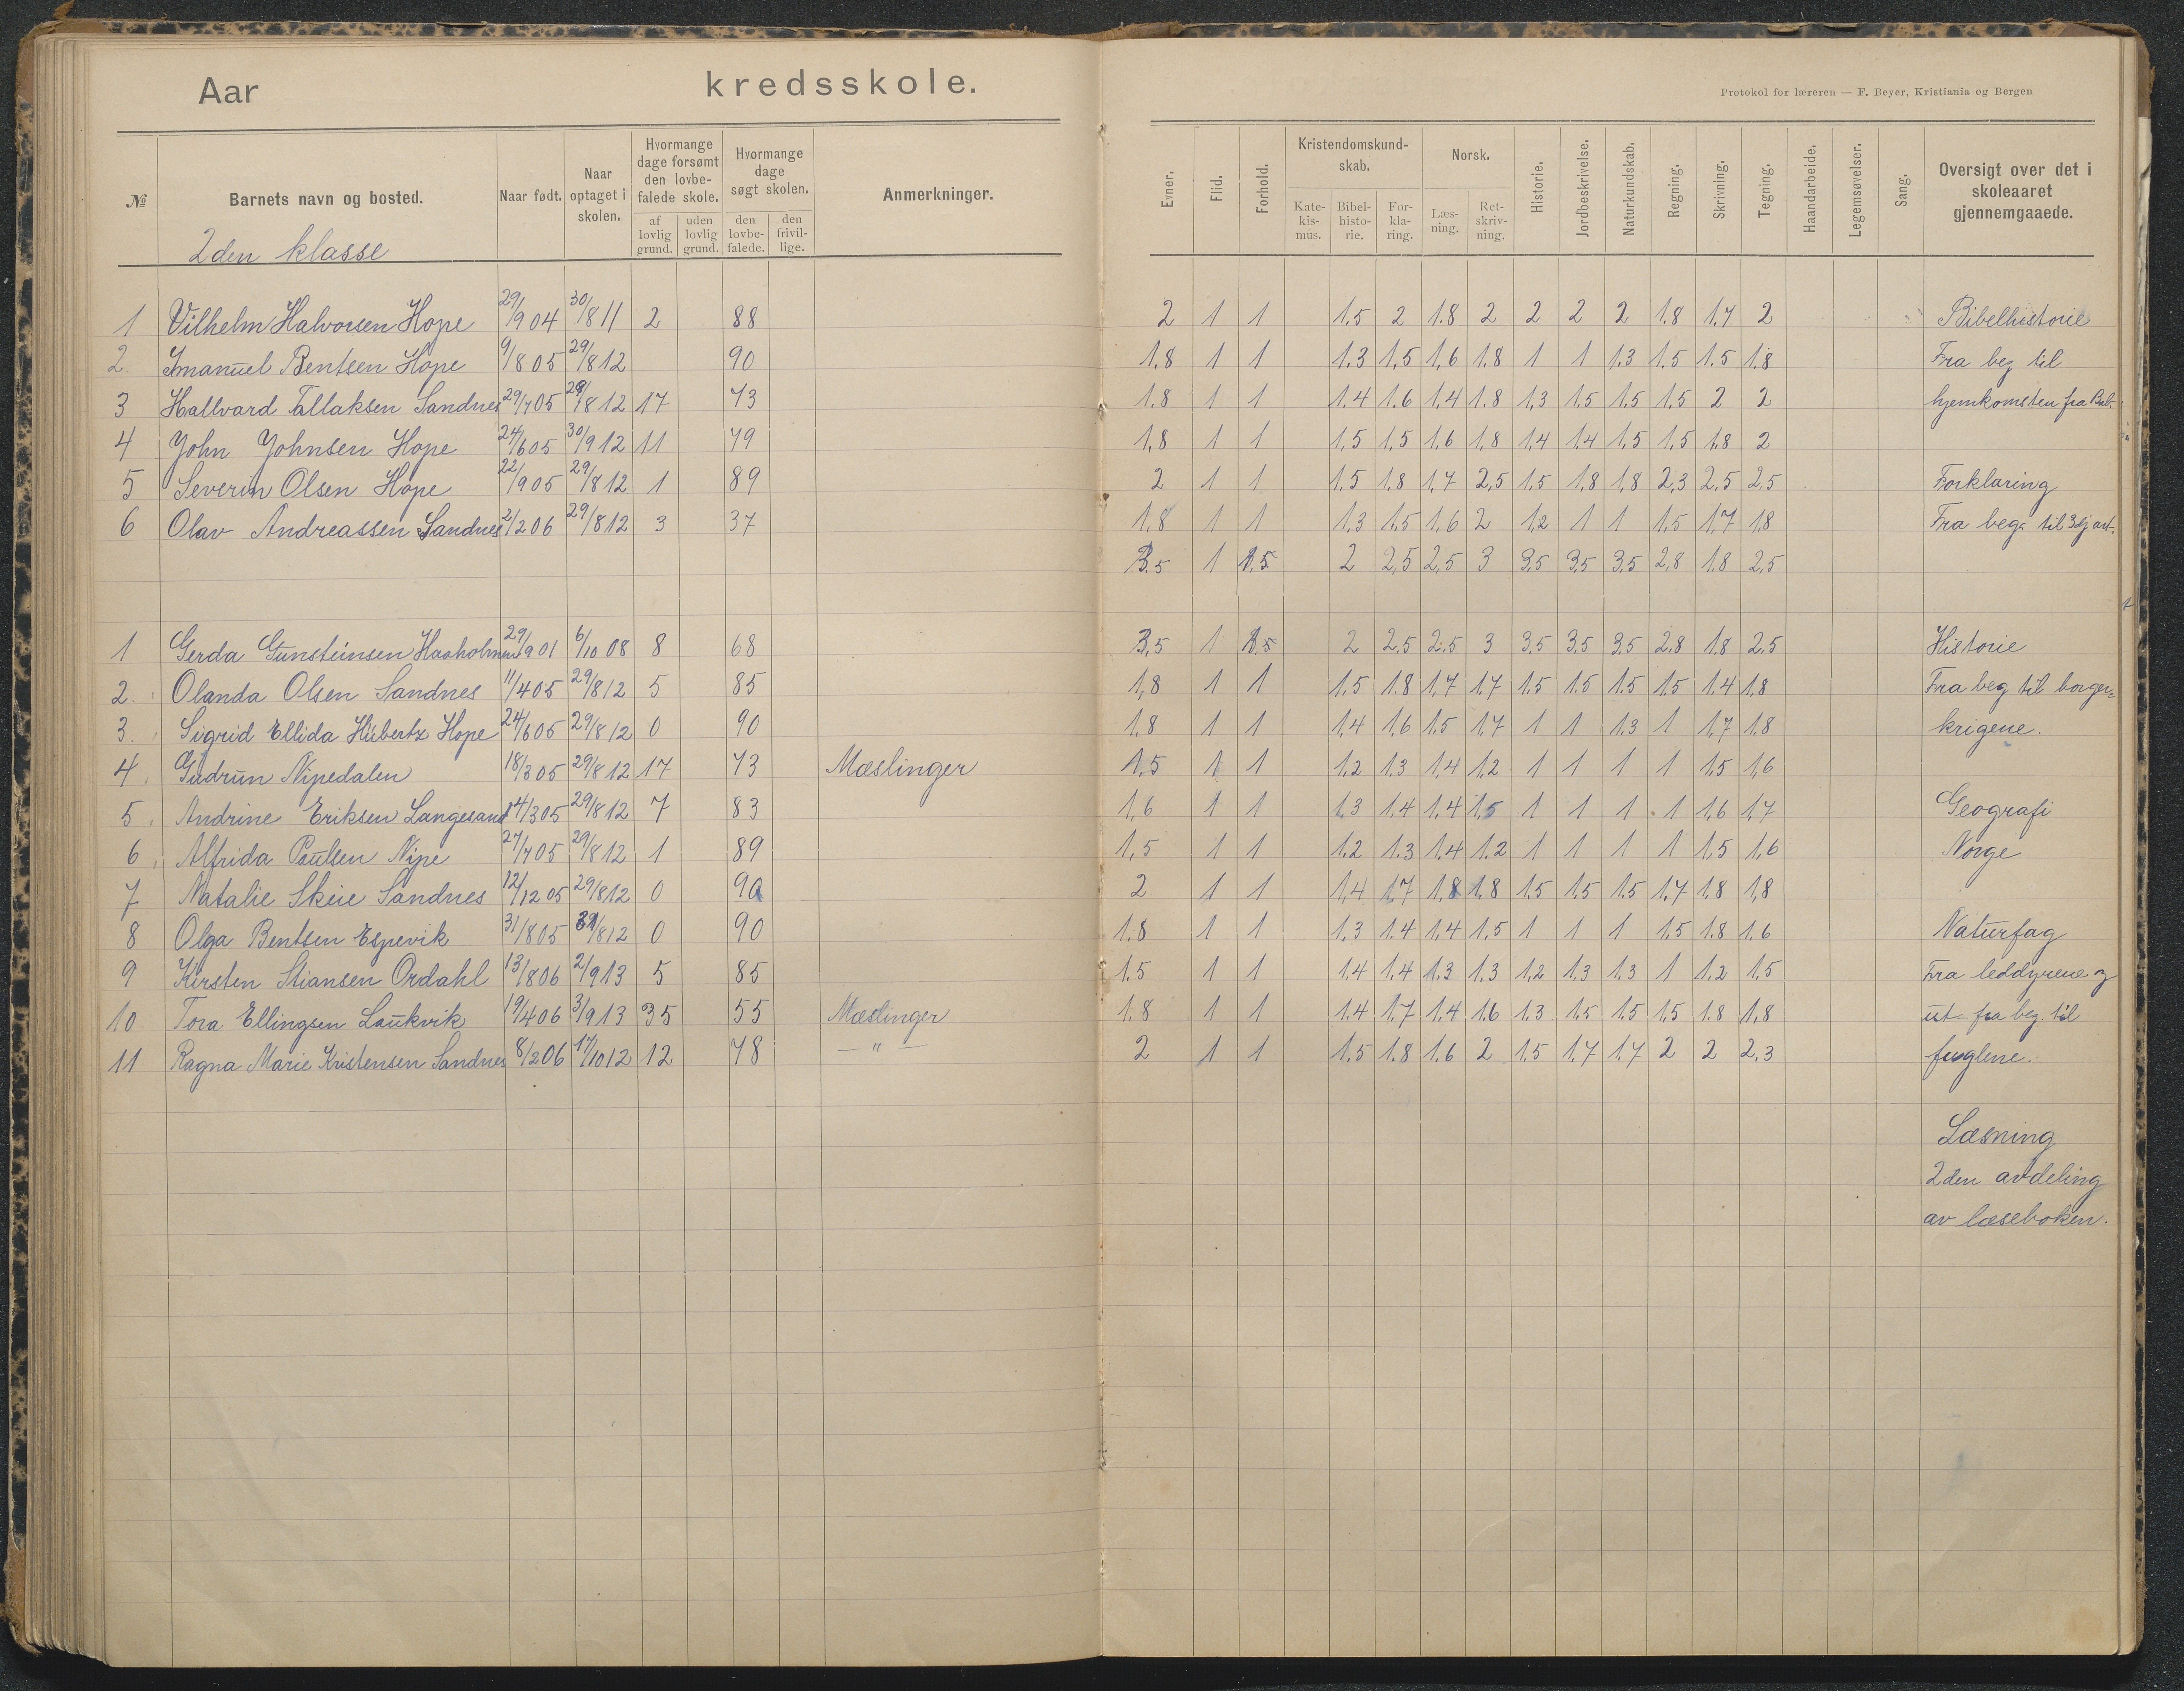 Aar kredsskole.
Protokol for læreren — F. Beyer, Kristiania og Bergen
№ Barnets navn og bosted. Naar født. Naar optaget i skolen. Hvormange dage forsømt den lovbefalede skole. af lovlig grund. uden lovlig grund. Hvormange dage søgt skolen. den lovbefalede. den frivillige. Anmerkninger.
Evner. Flid. Forhold. Kristendomskundskab. Katekismus. Bibelhistorie. Forklaring. Norsk. Læsning. Retskrivning. Historie. Jordbeskrivelse. Naturkundskab. Regning. Skrivning. Tegning. Haandarbeide. Legemsøvelser. Sang. Oversigt over det i skoleaaret gjennemgaaede.
2den klasse
1 Vilhelm Halvorsen Hope 29/9 04 30/8 11 2 88 2 1 1 1.5 2 1.8 2 2 2 2 1.8 1.7 2 Bibelhistorie
2. Imanuel Bentsen Hope 9/8 05 29/8 12 90 1.8 1 1 1.3 1,5 1,6 1.8 1 1 1.3 1.5 1.5 1.8 Fra beg til
3 Hallvard Tallaksen Sandnes 29/7 05 29/8 12 17 73 1.8 1 1 1.4 1.6 1,4 1.8 1,3 1.5 1.5 1,5 2 2 hjemkomsten fra Bab.
4 John Johnsen Hope 24/6 05 30/9 12 11 79 1,8 1 1 1,5 1,5 1,6 1,8 1,4 1.4 1,5 1,5 1,8 2
5 Severin Olsen Hope 22/9 05 29/8 12 1 89 2 1 1 1,5 1,8 1,7 2,5 1,5 1,8 1,8 2,3 2,5 2,5 Forklaring
6 Olav Andreassen Sandnes 2/2 06 29/8 12 3 37 1,8 1 1 1.3 1.5 1,6 2 1,2 1 1 1,5 1,7 1,8 Fra beg. til 3dj art.
3.5 1 1.5 2 2,5 2,5 3 3,5 3,5 3,5 2,8 1.8 2,5
1 Gerda Gunsteinsen Haaholmen 29/9 01 6/10 08 8 68 3,5 1 1.5 2 2,5 2.5 3 3,5 3,5 3,5 2.8 1.8 2.5 Historie
2. Olanda Olsen Sandnes 11/4 05 29/8 12 5 85 1,8 1 1 1,5 1.8 1,7 1.7 1.5 1.5 1.5 1,5 1.4 1,8 Fra beg til borger=
3. Sigrid Ellida Hübertz Hope 24/6 05 29/8 12 0 90 1.8 1 1 1,4 1,6 1,5 1,7 1 1 1.3 1 1,7 1,8 krigene.
4. Gudrun Nipedalen 18/3 05 29/8 12 17 73 Mæslinger 1,5 1 1 1,2 1.3 1,4 1,2 1 1 1 1 1,5 1,6
5. Andrine Eriksen Langesand 14/3 05 29/8 12 7 83 1,6 1 1 1,3 1.4 1.4 1,5 1 1 1 1 1,6 1,7 Geografi
6. Alfrida Paulsen Nipe 27/7 05 29/8 12 1 89 1,5 1 1 1.2 1.3 1,4 1.2 1 1 1 1 1,5 1,6 Norge
7 Natalie Skeie Sandnes 12/12 05 29/8 12 0 90 2 1 1 1,4 1,7 1,8 1,8 1.5 1,5 1.5 1.7 1.8 1,8
8 Olga Bentsen Espevik 31/8 05 31/8 12 0 90 1.8 1 1 1,3 1.4 1,4 1.5 1 1 1 1,5 1.8 1.6 Naturfag
9 Kirsten Stiansen Ordahl 13/8 06 2/9 13 5 85 1.5 1 1 1.4 1,4 1.3 1.3 1,2 1.3 1.3 1 1,2 1.5 Fra leddyrene og
10 Tora Ellingsen Laukvik 19/4 06 3/9 13 35 55 Mæslinger 1.8 1 1 1.4 1,7 1.4 1,6 1.3 1,5 1.5 1,5 1.8 1,8 ut - fra beg. til
11 Ragna Marie Kristensen Sandnes 8/2 06 17/10 12 12 78 — " — 2 1 1 1.5 1.8 1.6 2 1.5 1.7 1.7 2 2 2,3 fuglene.
Læsning
2den avdeling
av læseboken.